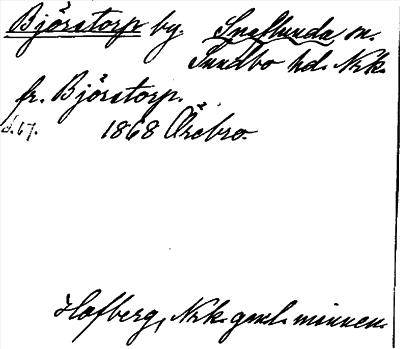 Björstorp by. Snaflunda sn.
Sundbo hd. Nrk.
fr. Björstorp.
s. 67. 1868 Örebro.
Hofberg, Nrk. gml. minnen.